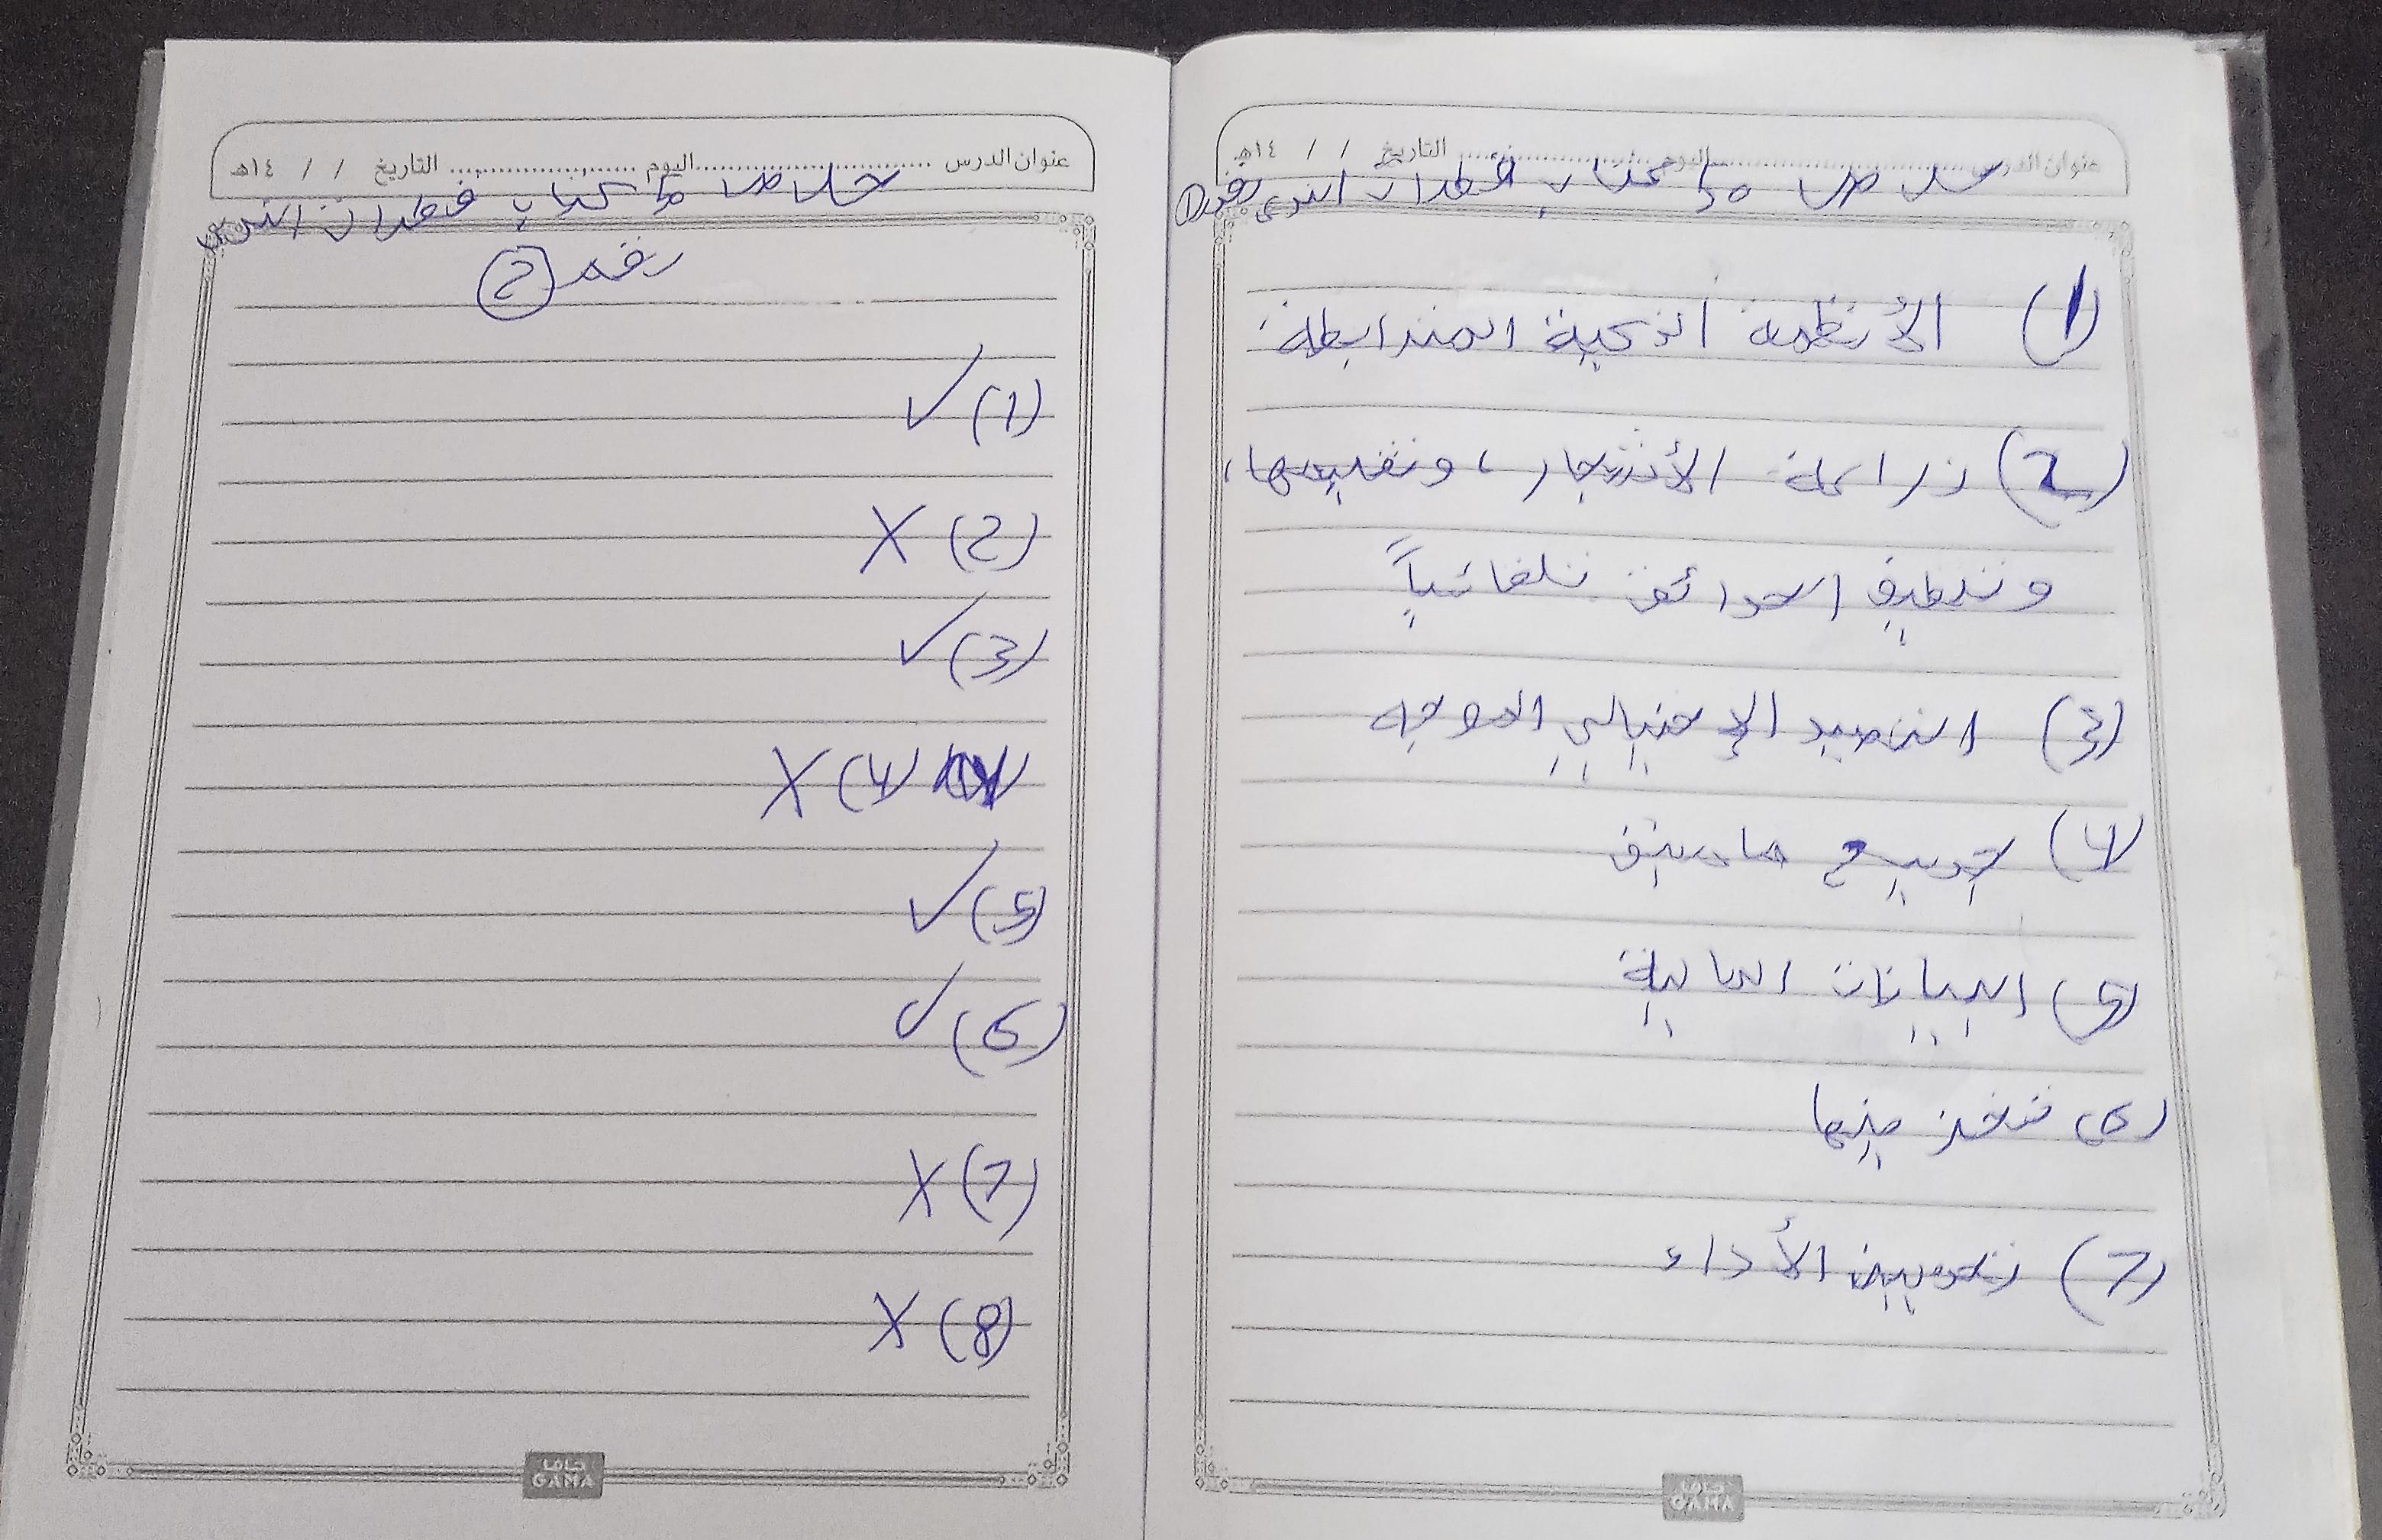 عنوان الدرس اليوم التاريخ / / ١٤هـ
حل ص 50 كتاب قطرات الندى رقم 1
(1) الأنظمة الذكية المترابطة
(2) زراعة الأشجار، وتقليمها،
وتنظيف الحدائق تلقائياً
(3) التصيد الإحتيالي الموجه
(4) جميع ماسبق
(5) البيانات المالية
(6) نتخذ منها
(7) تحسين الأداء
جاما
GAMA
عنوان الدرس اليوم التاريخ / / ١٤هـ
حل ص كتاب قطرات الندى
رقم 2
(1) ✓
(2) X
(3) ✓
(4) X
(5) ✓
(6) ✓
(7) X
(8) X
جاما
GAMA